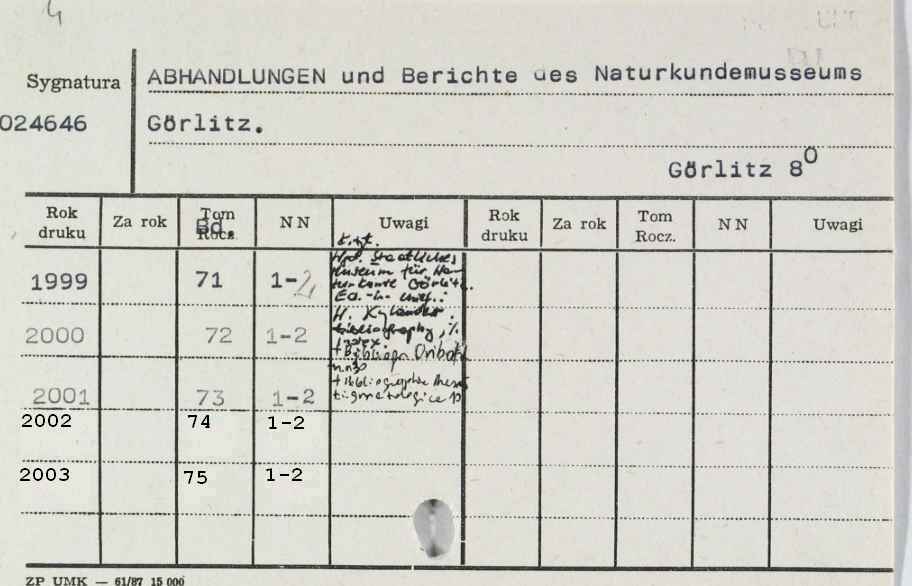 4
Sygnatura
ABHANDLUNGEN und Berichte des Naturkundemusseums
024646
Görlitz.
Görlitz 8⁰
Rok druku Za rok Tom Bd. Rocz. NN Uwagi Rok druku Za rok Tom Rocz. NN Uwagi
1999 71 1-2
Hrsg. Staatliches
Museum für Na-
turkunde Görlitz.
Ed.-in-chief.:
2000 72 1-2
H. Kylander.
bibliography,
index.
2001 73 1-2
2002 74 1-2
2003 75 1-2
ZP UMK — 61/87 15 000